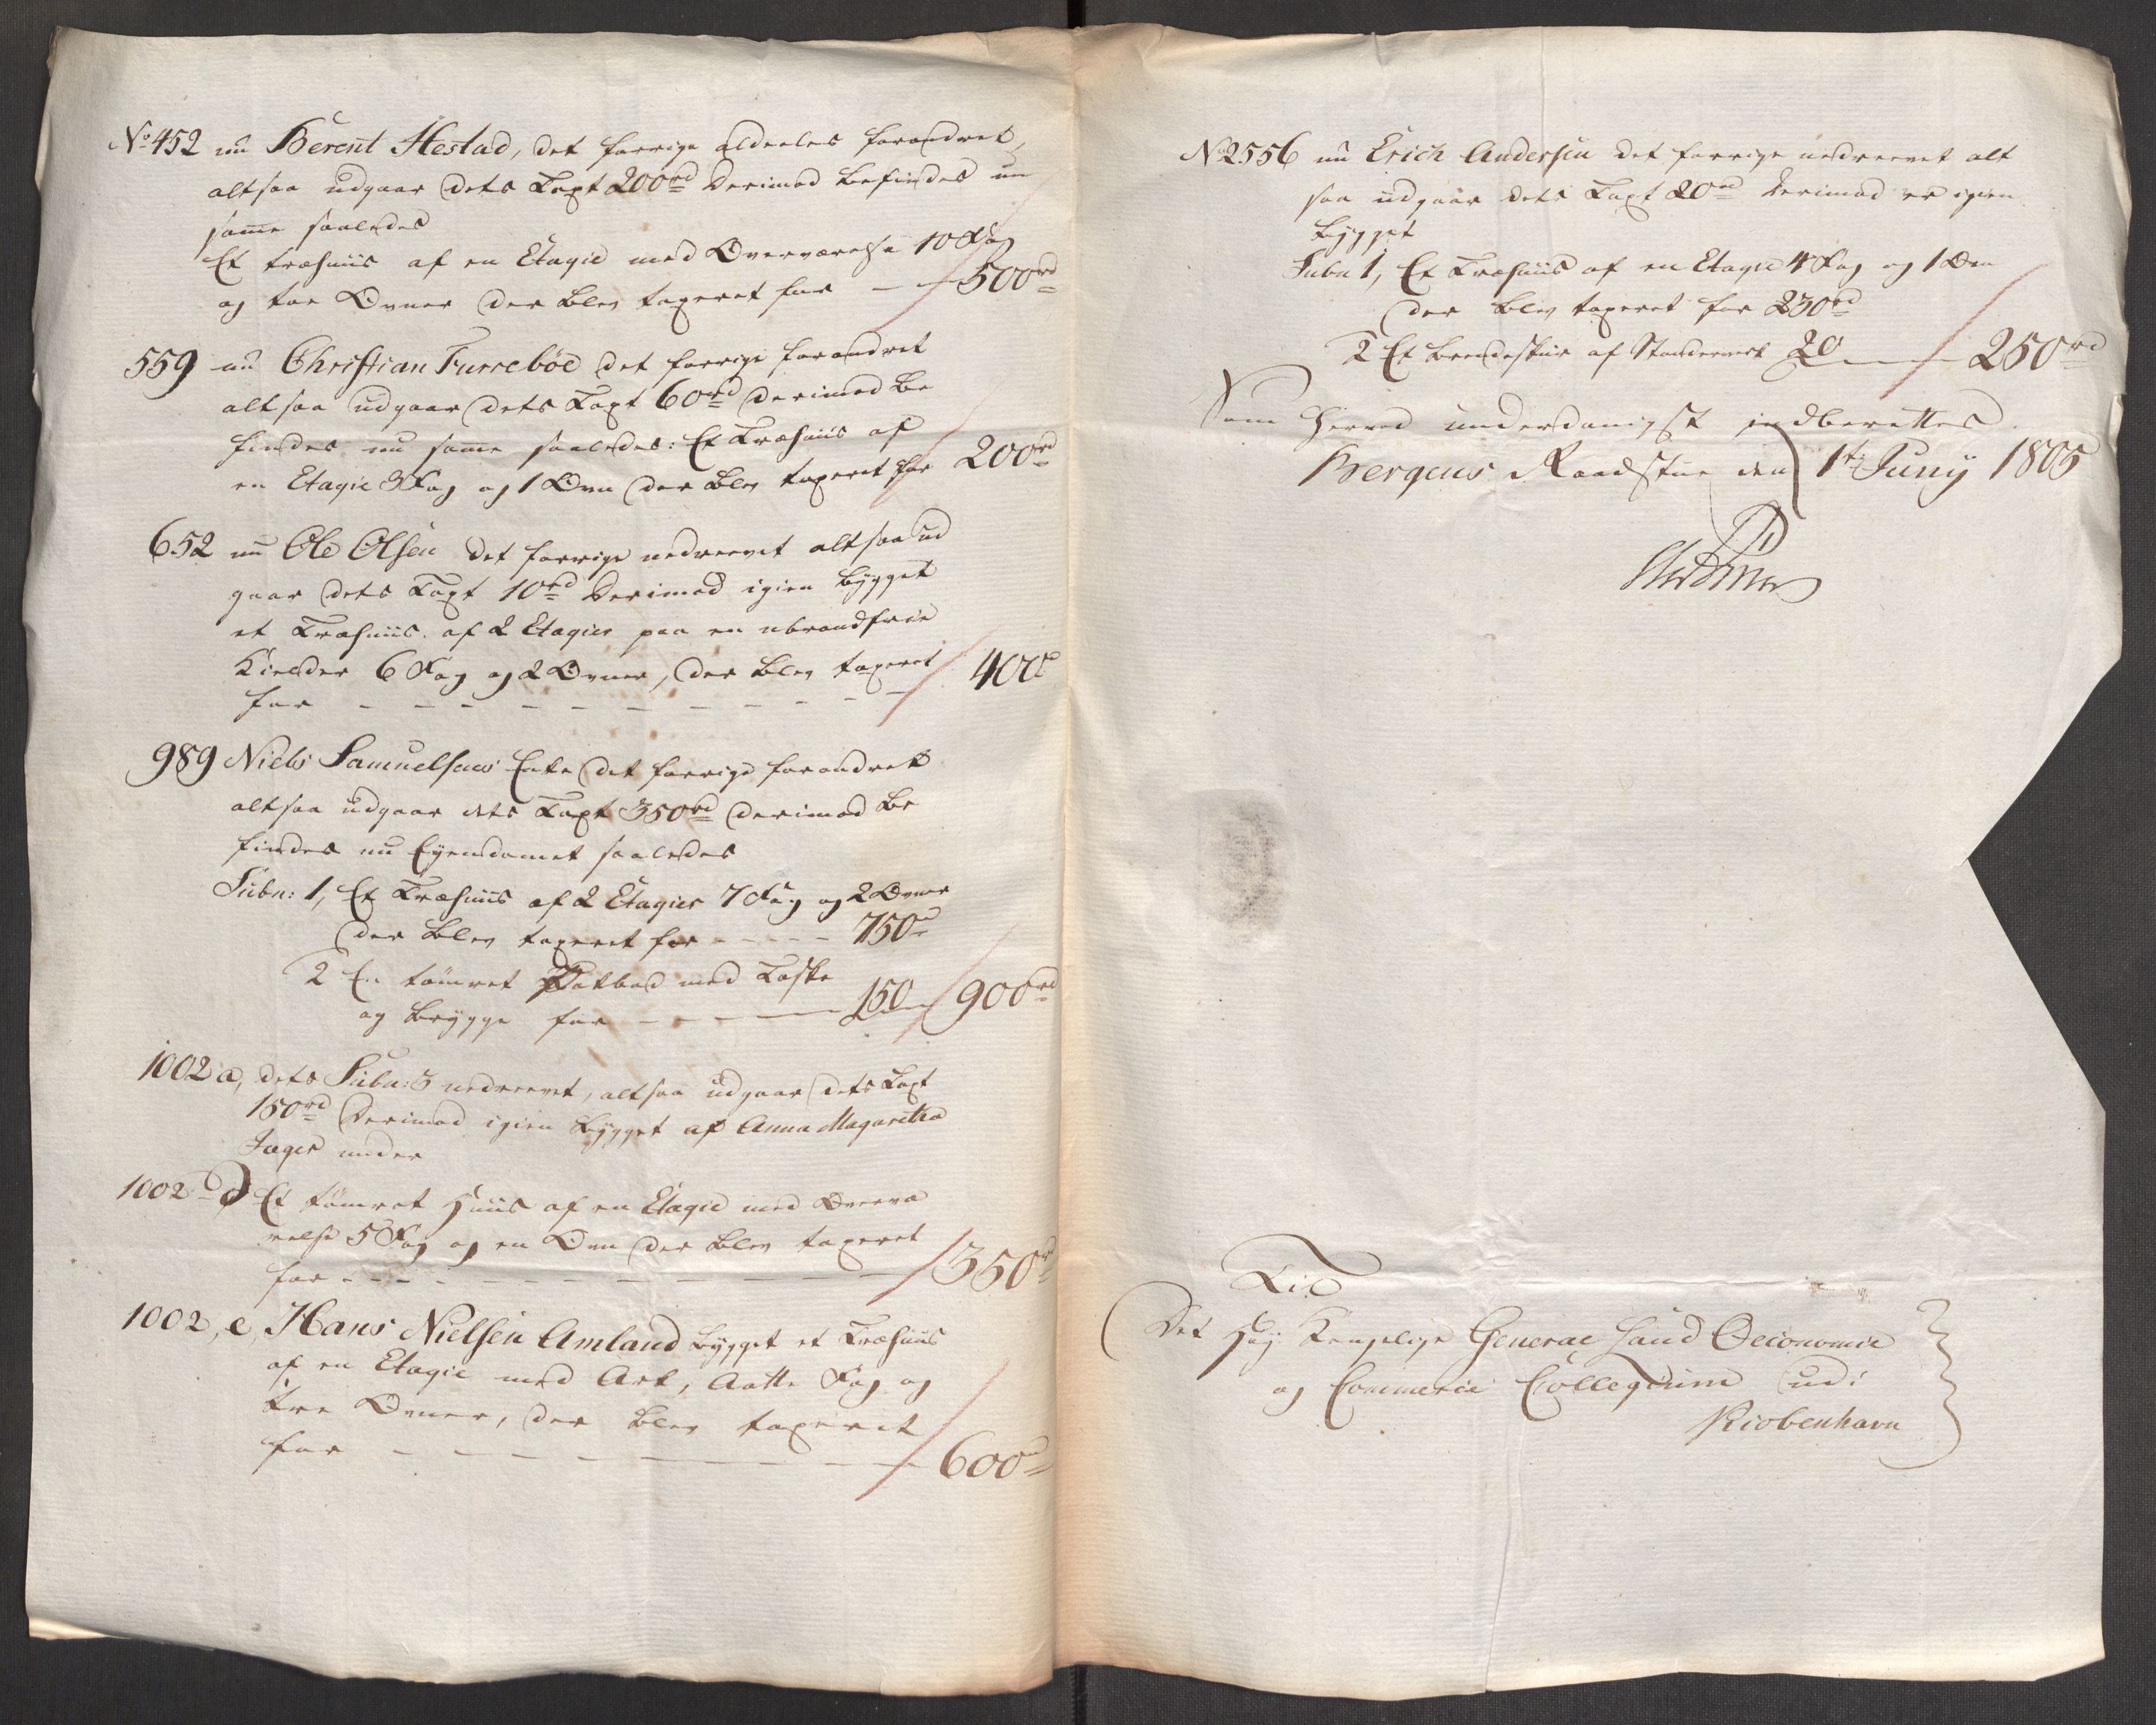 No 452 nu Berent Hestad, det forrige aldeeles forandret,
altsaa udgaar dets Taxt 200 rd derimod befindes nu
samme saaledes
Et træhuus af en Etagie med Overværelse 10 Fag
og toe Ovner der blev taxeret for - - 500 rd
559 nu Christian Furrebøe det forrige forandret
altsaa udgaar dets Taxt 60 rd derimod be
findes nu samme saaledes: Et Træhuus af
en Etagie 3 Fag og 1 Ovn der blev taxeret for 200 rd
652 nu Ole Olsen det forrige nedrevet altsaa ud
gaar dets Taxt 10 rd derimod igien bygget
et Træhuus af 2 Etagier paa en ubrandfrie
Kielder 6 Fag og 2 Ovner, der blev taxeret
for - - - - - - - - - 400 rd
989 Niels Samuelsens Enke det forrige forandret
altsaa udgaar dets Taxt 350 rd derimod be
findes nu Eyendomet saaledes
Subn: 1, Et Træhuus af 2 Etagier 7 Fag og 2 Ovner
der blev taxeret for - - - - - 750 rd
2 En tømret med
og brygge for - - - - 150 900 rd
1002 a, dets Subn: 3 nedrevet, altsaa udgaar dets Taxt
150 rd derimod igien bygget af Anna Magaretha
Jager under
1002 d Et tømret Huus af en Etagie med Overvæ
relse 5 Fag og en Ovn der blev taxeret
for - - - - - - - - - 350 rd
1002, e, Hans Nielsen Amland bygget et Træhuus
af en Etagie med Ark, Aatte Fag og
tre Ovner, der blev taxeret
for - - - - - - - - 600 rd
No 2556 nu Erich Andersen det forrige nedrevet alt
saa udgaar dets Taxt 20 rd derimod er igien
bygget
Subn 1, Et Træhuus af en Etagie 4 Fag og 1 Ovn
der blev taxeret for 230 rd
2 Et brendeskur af Standerverk 20 - - 250 rd
Som herved underdanigst indberettes
Bergens Raadstue den 1te Juny 1805
Til
Det Høy Kongelige General Land Oeconomie
og Commerce Collegium udi
Kiøbenhavn